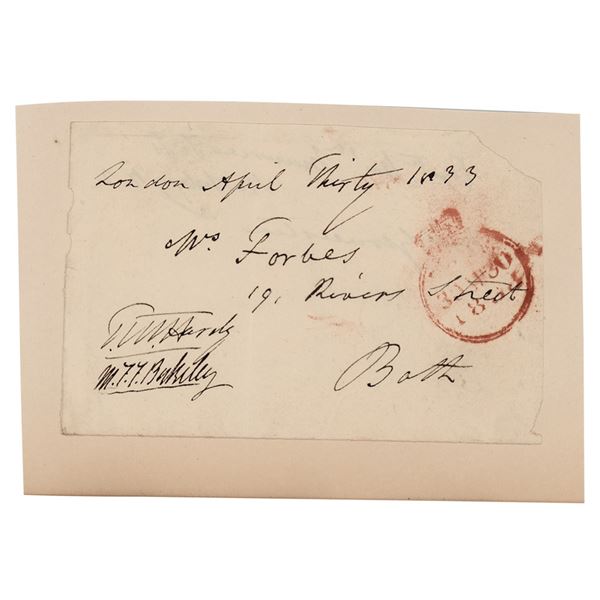 London April Thirty 1833
Mrs Forbes
19, Rivers Street
Bath
T. M. Hardy
M. F. F. Berkeley